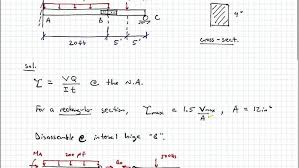 A B C
20ft 5' 5'
4"
cross-sect.
Sol.
τ = VQ / It @ the N.A.
For a rectangular section, τmax = 1.5 Vmax / A , A = 12in²
Disassemble @ internal hinge "B".
MA 200 plf